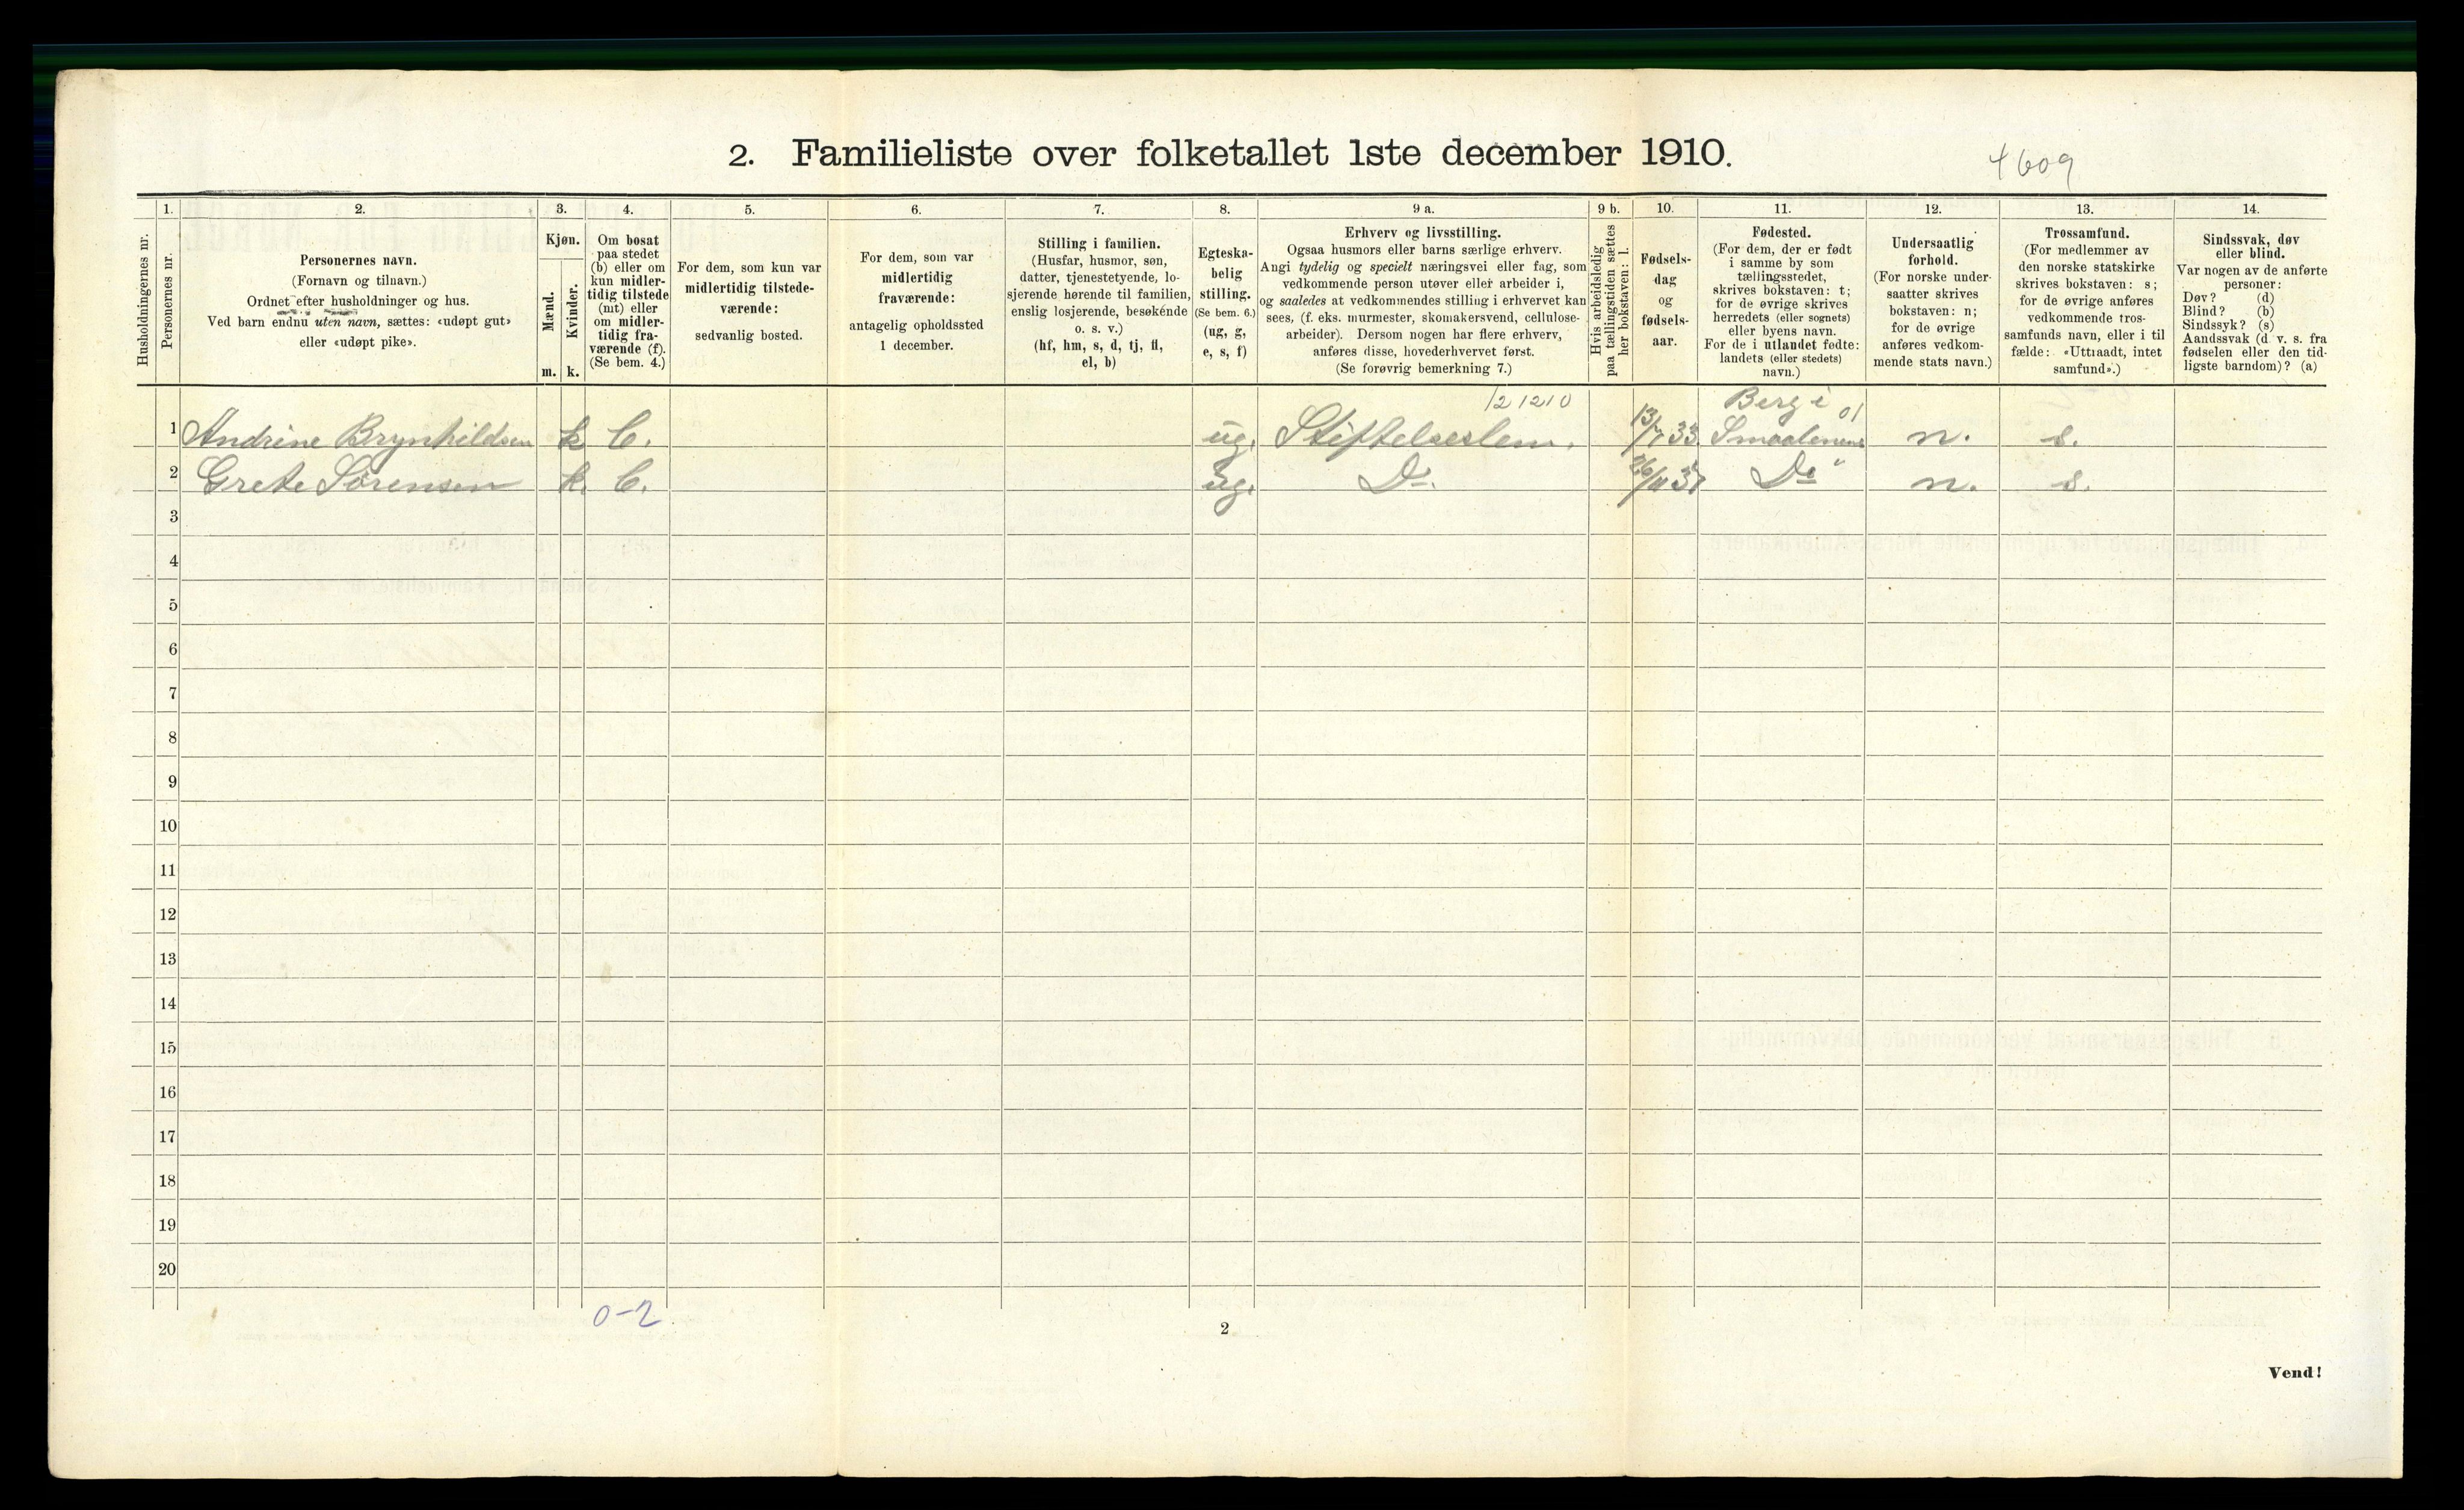 2. Familieliste over folketallet 1ste december 1910.
4609
1. 2. 3. 4. 5. 6. 7. 8. 9 a. 9 b. 10. 11. 12. 13. 14.
Husholdningernes nr.
Personernes nr.
Personernes navn.
(Fornavn og tilnavn.)
Ordnet efter husholdninger og hus.
Ved barn endnu uten navn, sættes: «udøpt gut»
eller «udøpt pike».
Kjøn.
Mænd.
Kvinder.
m. k.
Om bosat
paa stedet
(b) eller om
kun midler-
tidig tilstede
(mt) eller
om midler-
tidig fra-
værende (f).
(Se bem. 4.)
For dem, som kun var
midlertidig tilstede-
værende:
sedvanlig bosted.
For dem, som var
midlertidig
fraværende:
antagelig opholdssted
1 december.
Stilling i familien.
(Husfar, husmor, søn,
datter, tjenestetyende, lo-
sjerende hørende til familien,
enslig losjerende, besøkende
o. s. v.)
(hf, hm, s, d, tj, fl,
el, b)
Egteska-
belig
stilling.
(Se bem. 6.)
(ug, g,
e, s, f)
Erhverv og livsstilling.
Ogsaa husmors eller barns særlige erhverv.
Angi tydelig og specielt næringsvei eller fag, som
vedkommende person utøver eller arbeider i,
og saaledes at vedkommendes stilling i erhvervet kan
sees, (f. eks. murmester, skomakersvend, cellulose-
arbeider). Dersom nogen har flere erhverv,
anføres disse, hovederhvervet først.
(Se forøvrig bemerkning 7.)
Hvis arbeidsledig
paa tællingstiden sættes
her bokstaven: l.
Fødsels-
dag
og
fødsels-
aar.
Fødested.
(For dem, der er født
i samme by som
tællingsstedet,
skrives bokstaven: t;
for de øvrige skrives
herredets (eller sognets)
eller byens navn.
For de i utlandet fødte:
landets (eller stedets)
navn.)
Undersaatlig
forhold.
(For norske under-
saatter skrives
bokstaven: n;
for de øvrige
anføres vedkom-
mende stats navn.)
Trossamfund.
(For medlemmer av
den norske statskirke
skrives bokstaven: s;
for de øvrige anføres
vedkommende tros-
samfunds navn, eller i til
fælde: «Uttraadt, intet
samfund».)
Sindssvak, døv
eller blind.
Var nogen av de anførte
personer:
Døv? (d)
Blind? (b)
Sindssyk? (s)
Aandssvak (d. v. s. fra
fødselen eller den tid-
ligste barndom)? (a)
121210 Berg i 01
1 Andrine Brynhildsen k b. ug. Stiftelseslem. 13/7 33 Smaalenene n. s.
2 Grete Sørensen k. b. ug. Do. 26/11 37 Do n. s.
3
4
5
6
7
8
9
10
11
12
13
14
15
16
17
18
19
20
0-2
2
Vend!